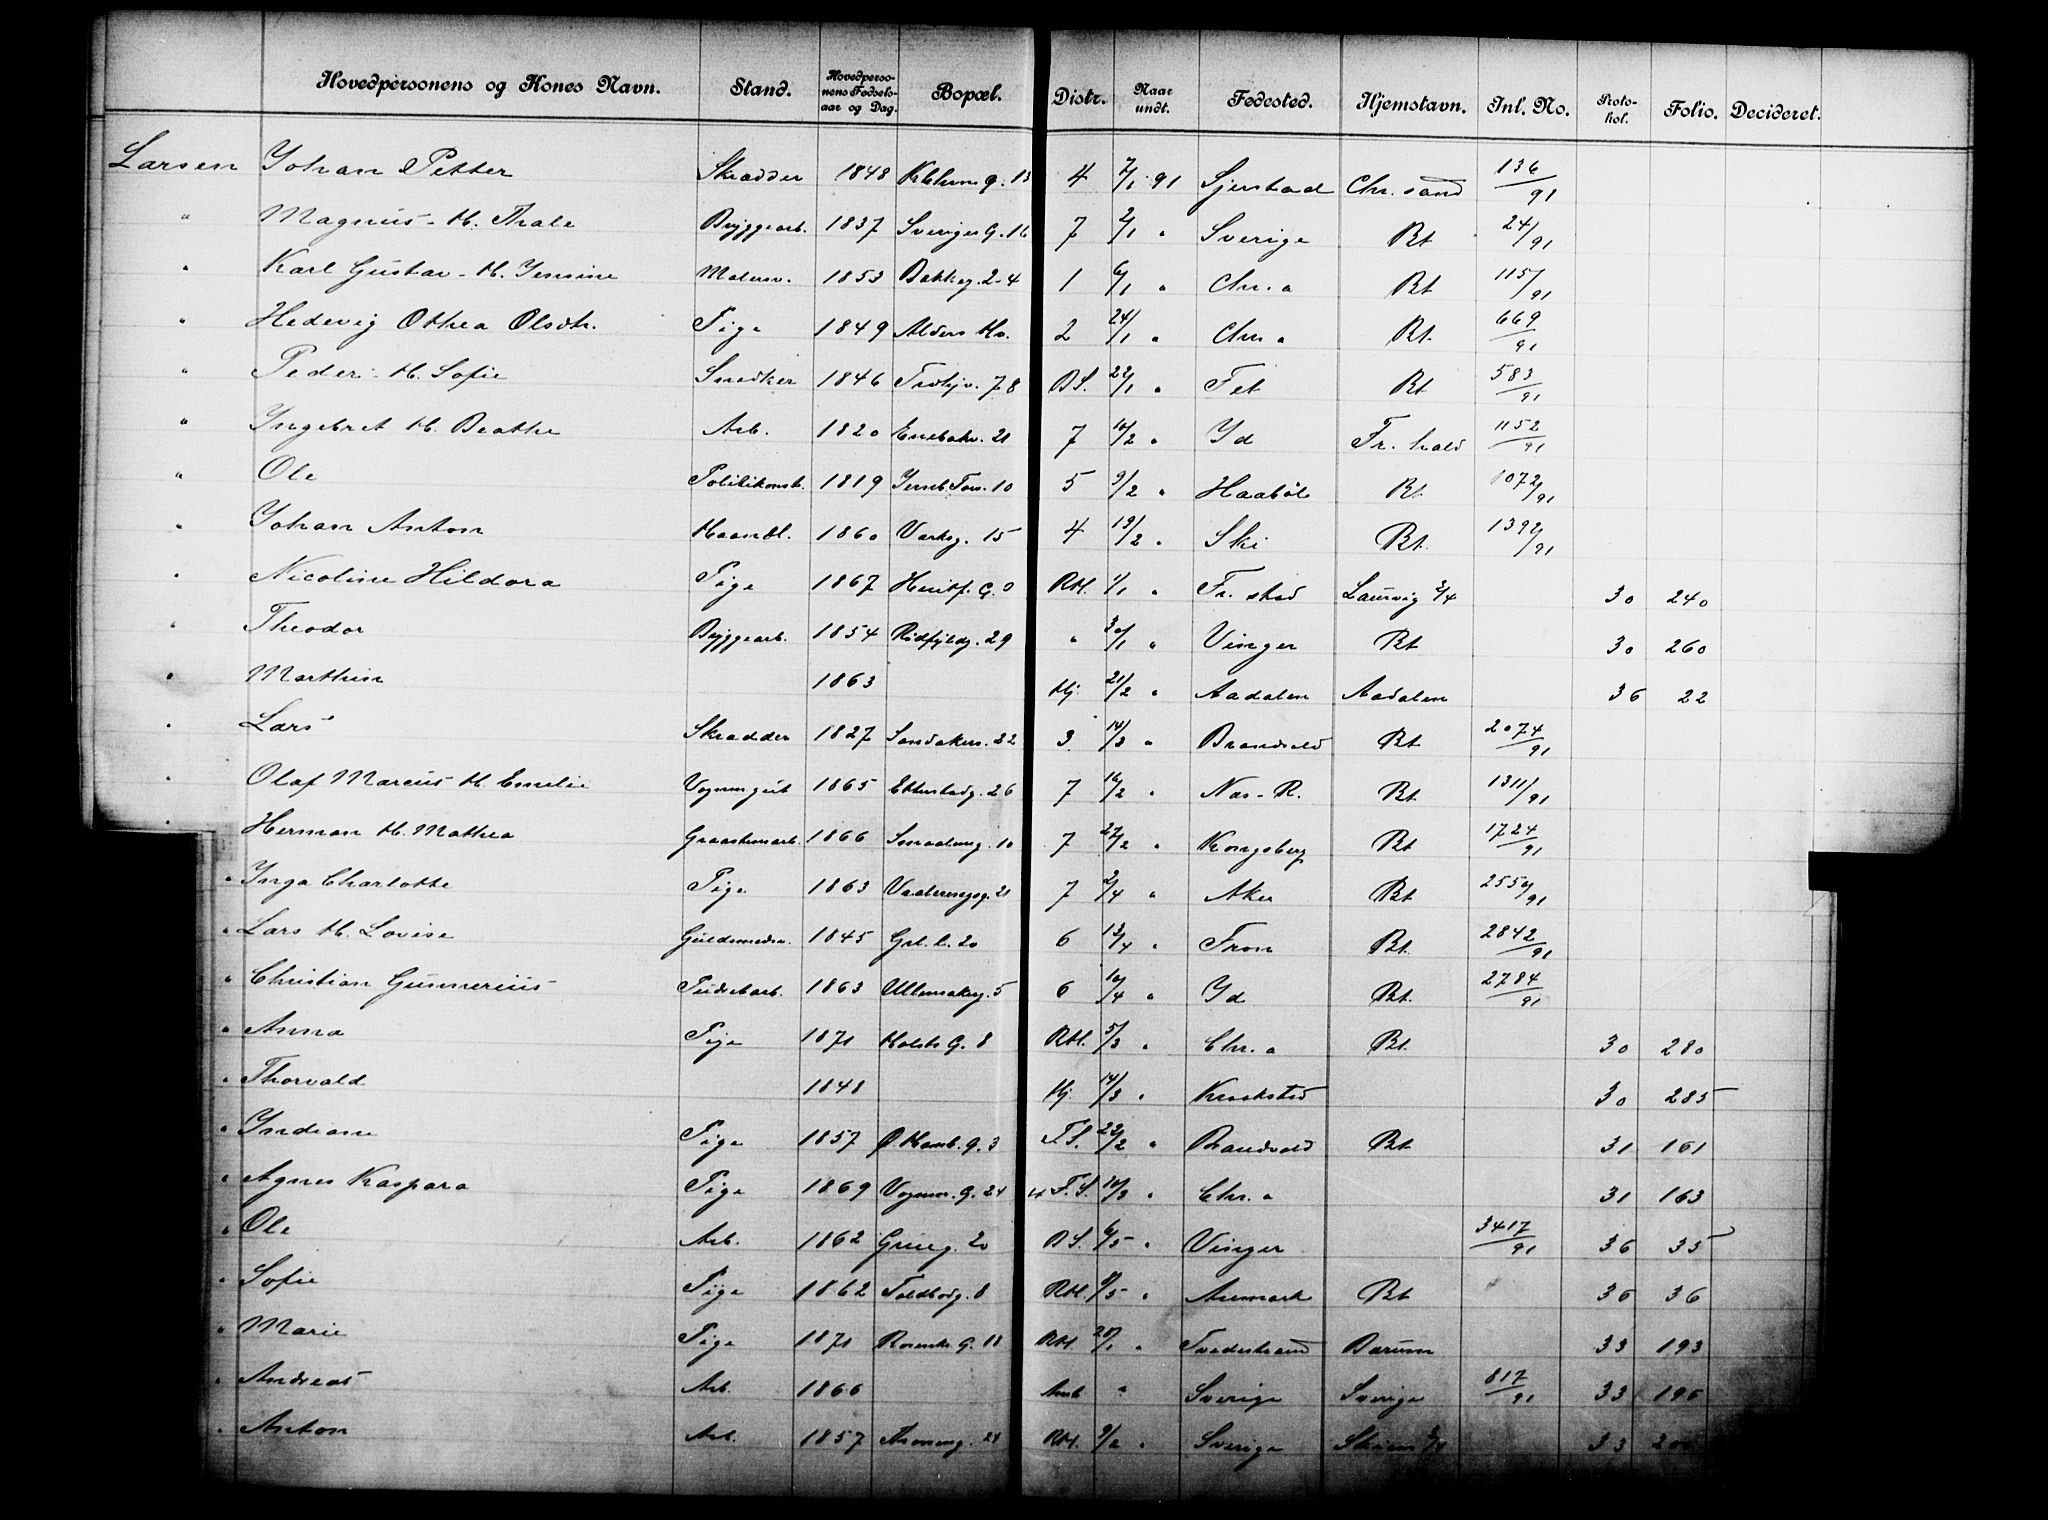 Hovedpersonens og Kones Navn. Stand. Hovedpersonens Fødselsaar og Dag. Bopæl. Distr. Naar undt. Fødested. Hjemstavn. Inl. No. Protokol. Folio. Decideret.
Larsen Johan Petter Skrædder 1848 13 4 7/1 91 Chr.sand 136/91
" Magnus - H. Thale Bryggearb. 1837 Sveriges G. 16 7 2/1 " Sverige Bt 24/91
" Karl Gustav - H. Jensine Malersv. 1853 Bakkeg. 2-4 1 6/1 " Chr.a Bt 115/91
" Hedevig Othea Olsdtr. Pige 1849 Alders Hv. 2 24/1 " Chr.a Bt. 669/91
" Peder - H. Sofie Snedker 1846 78 B.S. 22/1 " Fet Bt 583/91
" Ingebret H. Beathe Arb. 1820 Enebakv. 21 7 10/2 " Id Fr.hald 1152/91
" Ole Politikonst. 1819 Jernb.Torv. 10 5 9/2 " Haabøl Bt 1072/91
" Johan Anton Haandl. 1860 Verksg. 15 4 19/2 " Ski Bt. 1392/91
" Nicoline Hildora Pige 1867 Heitf. G. 9 RH. 1/1 " Fr.stad Laurvig 3/4 30 240
" Theodor Bryggearb. 1854 Rødfyldg. 29 " 30/1 " Vinger Bt 30 260
" Marthin 1863 Hj. 21/2 " Aadalen Aadalen 36 22
" Lars Skrædder 1827 Sandakerv. 22 3 14/3 " Brandvold Bt 2074/91
" Olaf Marcus H. Emilie Vognmgut 1865 Etterstadg. 26 7 16/2 " Næs - R. Bt 1311/91
" Herman H. Mathea Graastenarb. 1866 Smaaleng. 10 7 27/2 " Kongsberg Bt 1724/91
" Inga Charlotte Pige 1863 Vaalerengsg. 21 7 2/4 " Aker Bt 2550/91
" Lars H. Lovise Guldsmedsv. 1845 Grl. l. 20 6 13/4 " Fron Bt. 2842/91
" Christian Gunnerius 1863 Ullensakerg. 5 6 10/4 " Id Bt. 2784/91
" Anna Pige 1871 Holsts G. 8 RH. 5/3 " Chr.a Bt. 30 280
" Thorvald 1848 Hj. 14/3 " Kraakstad 30 285
" Indiane Pige 1857 Ø Hamb. G. 3 F.S. 23/2 " Brandvold Bt 31 161
" Agnes Kaspara Pige 1869 Vognm. G. 24 F.S. 10/3 " Chr.a 31 163
" Ole Arb. 1862 Grueg. 20 B.S. 6/5 " Vinger 3417/91 36 35
" Sofie Pige 1862 Toldbodg. 8 RH. 8/5 " Aremark Bt 36 36
" Marie Pige 1871 Rosenk. G. 18 RH. 28/1 " Tvedestrand Bærum 33 193
" Andreas Arb. 1866 Amb " Sverige Sverige 817/91 33 196
" Anton Arb. 1857 RH. 9/2 " Sverige 33